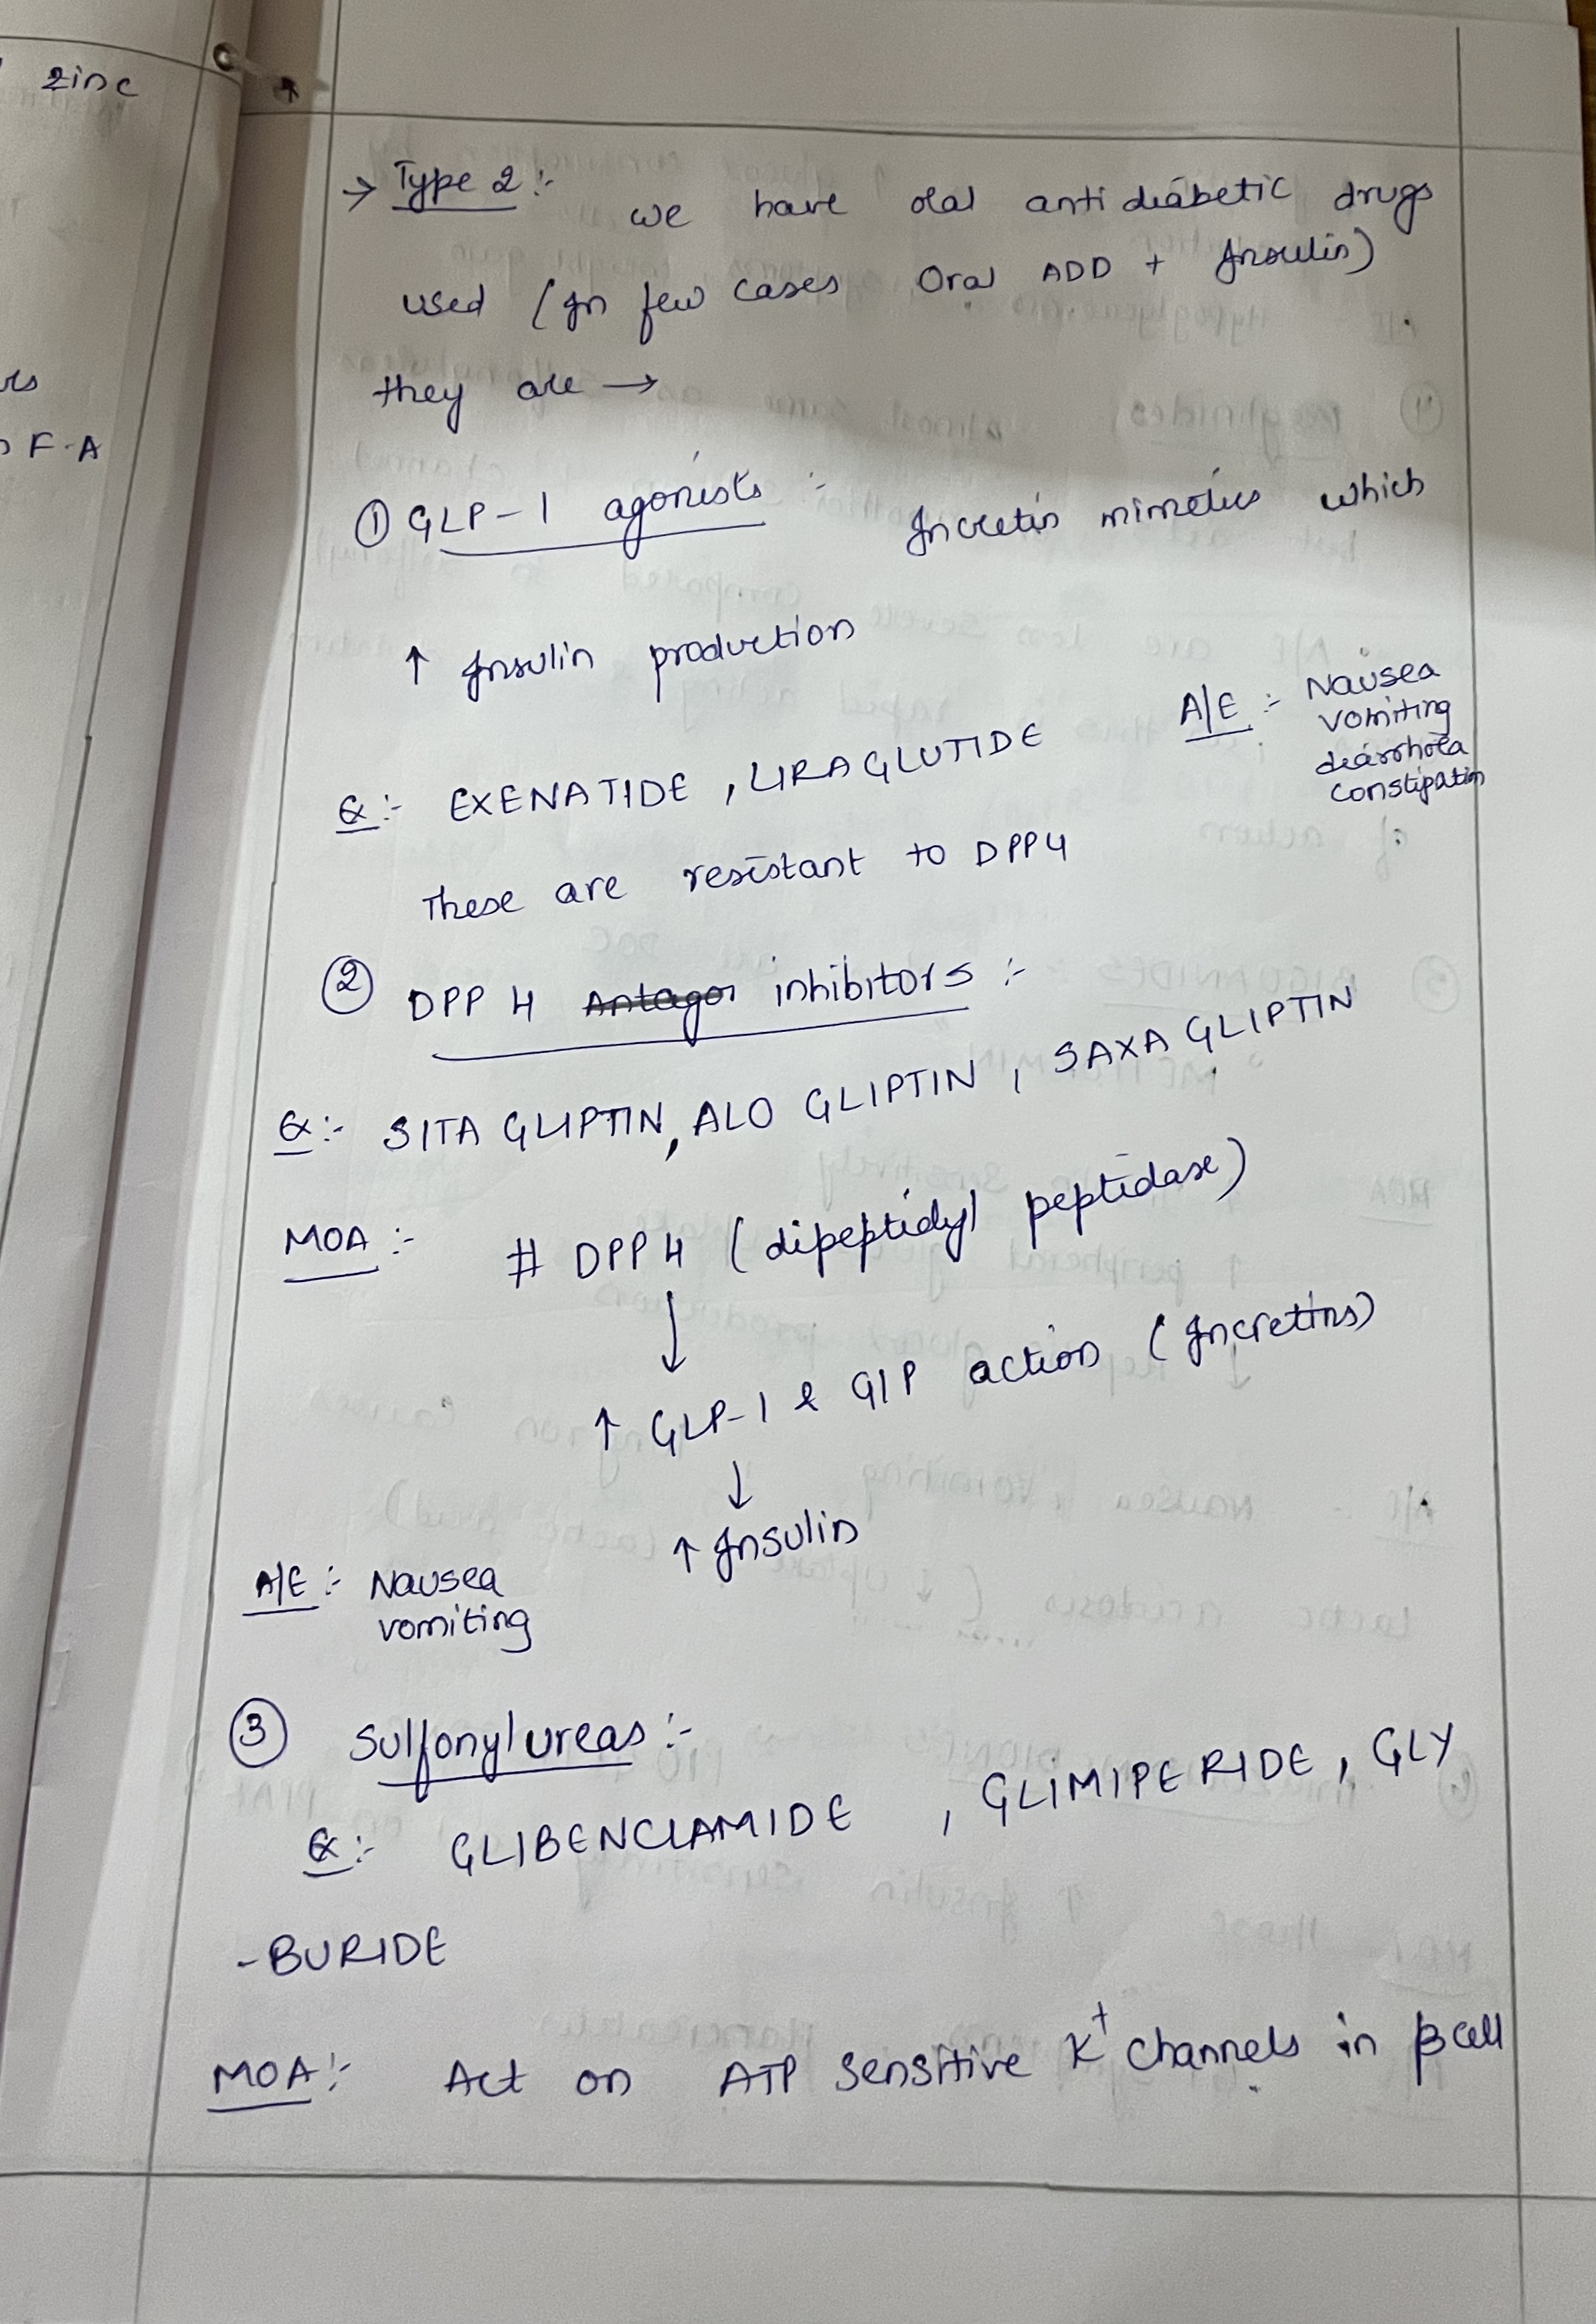 zinc
F-A
→ Type 2 :- we have oral antidiabetic drugs
used (In few cases Oral ADD + Insulin)
they are →
① GLP-1 agonists :- Incretin mimetics which
↑ Insulin production
A/E :- Nausea
vomiting
diarrhoea
constipation
Ex :- EXENATIDE, LIRAGLUTIDE
These are resistant to DPP4
② DPP 4 Antagon inhibitors :-
Ex :- SITA GLIPTIN, ALO GLIPTIN, SAXA GLIPTIN
MOA :- # DPP4 (dipeptidyl peptidase)
↓
↑ GLP-1 & GIP action (Incretins)
↓
↑ Insulin
A/E :- Nausea
vomiting
③ Sulfonylureas :-
Ex :- GLIBENCLAMIDE, GLIMIPERIDE, GLY
-BURIDE
MOA :- Act on ATP sensitive K+ channels in β cell